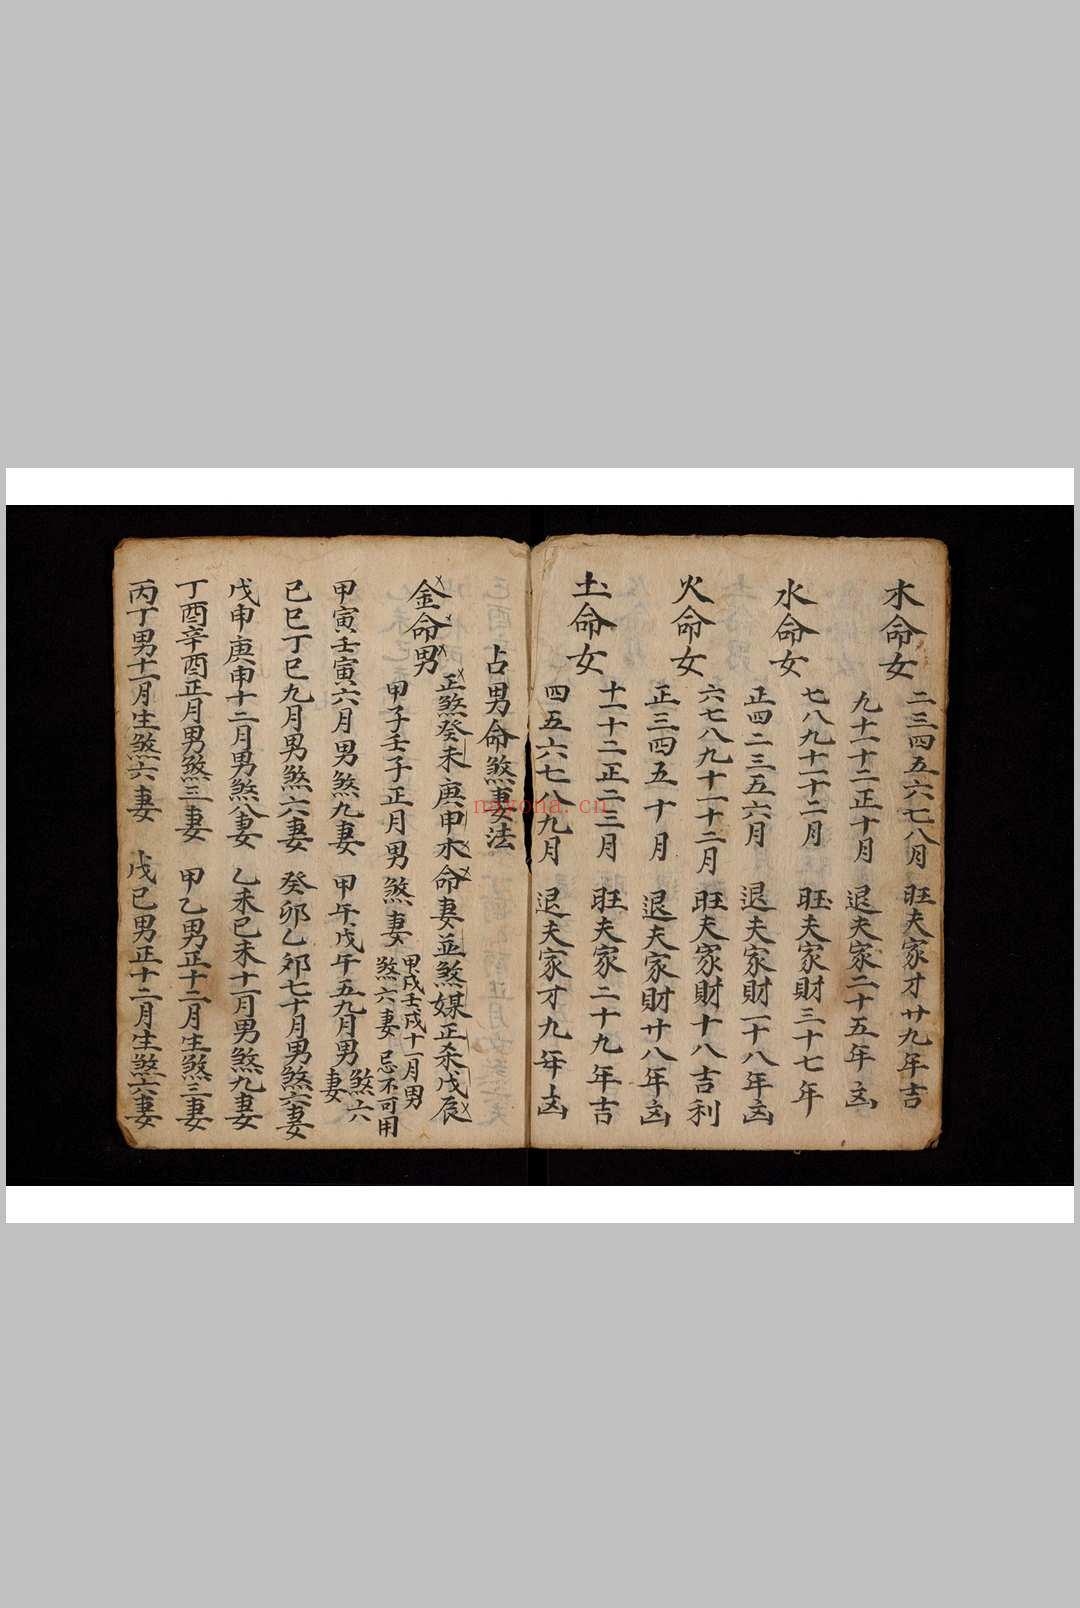 木命女
二三四五六七八月 旺夫家才廿九年吉
九十一十二正十月 退夫家二十五年凶
水命女
七八九十一十二月 旺夫家財三十七年
正四二三五六月 退夫家財一十八年凶
火命女
六七八九十一十二月 旺夫家財十八吉利
正三四五十月 退夫家財廿八年凶
土命女
十一十二正二三月 旺夫家二十九年吉
四五六七八九月 退夫家才九年凶
占男命煞妻法
金命男
正煞癸未庚申水命妻並煞媒正杀戊辰
甲子壬子正月男煞妻 甲戌壬戌十一月男
煞六妻 忌不可用
甲寅壬寅六月男煞九妻 甲午戊午五九月男煞六妻
己巳丁巳九月男煞六妻 癸卯乙卯七十月男煞六妻
戊申庚申十二月男煞八妻 乙未己未十一月男煞九妻
丁酉辛酉正月男煞三妻 甲乙男正十二月生煞三妻
丙丁男十一月生煞六妻 戊己男正十二月生煞六妻
nayona.cn